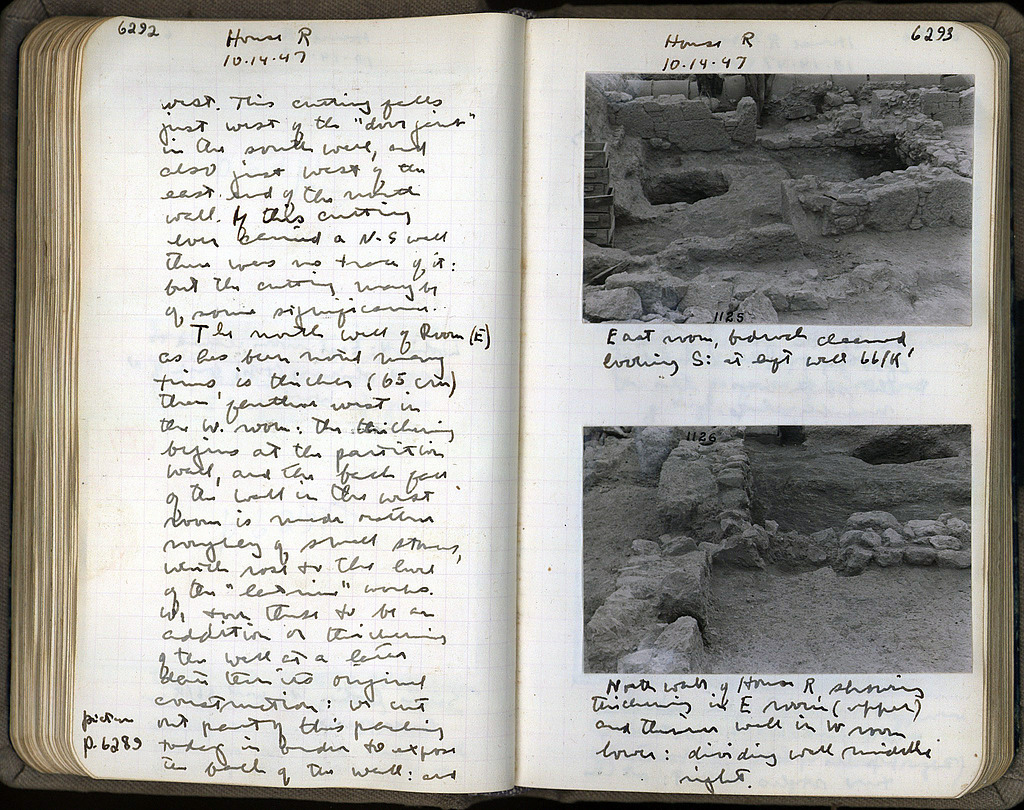 6292
House R
10.14.47
west. This cutting falls
just west of the "door jamb"
in the south wall, and
also just west of the
east end of the north
wall. If this cutting
ever carried a N-S wall
there was no trace of it:
but the cutting may be
of some significance.
The north wall of Room (E)
as has been noted many
times is thicker (65 cm)
than further west in
the W. room. The thickening
begins at the partition
wall, and the back face
of the wall in the west
room is made rather
roughly of small stones,
which rose to the level
of the "latrine" works.
We took these to be an
addition or thickening
of the wall at a later
date than its original
construction: we cut
out part of this packing
today in order to expose
the back of the wall: and
picture
p. 6289
6293
House R
10.14.47
1125
East room, bedrock cleaned
looking S: at left well 66/K'
1126
North wall of House R, showing
thickening in E room (upper)
and thinner wall in W room
lower: dividing wall middle
right.